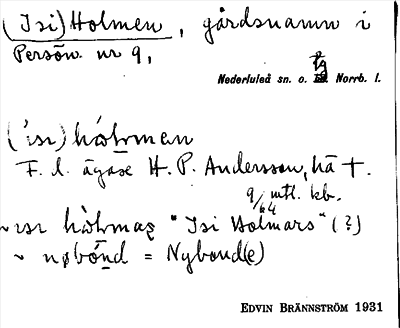 (Isi) Holmen, gårdsnamn i
Persön nr 9,
Nederluleå sn. o. tg Norrb. l.
(ˈisı) hólmen
F. d. ägare H. P. Andersson, hä †.
9/64 mtl. kb.
~ ısı hólmaʂ "Isi Holmars" (?)
~ nybónd = Nybond(e)
EDVIN BRÄNNSTRÖM 1931